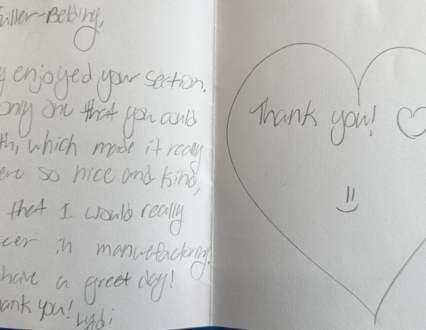 uller-Belding,
enjoyed your section.
only one that you could
th, which made it really
so nice and kind,
that I would really
in manufactoring.
have a great day!
ank you!
Thank you!